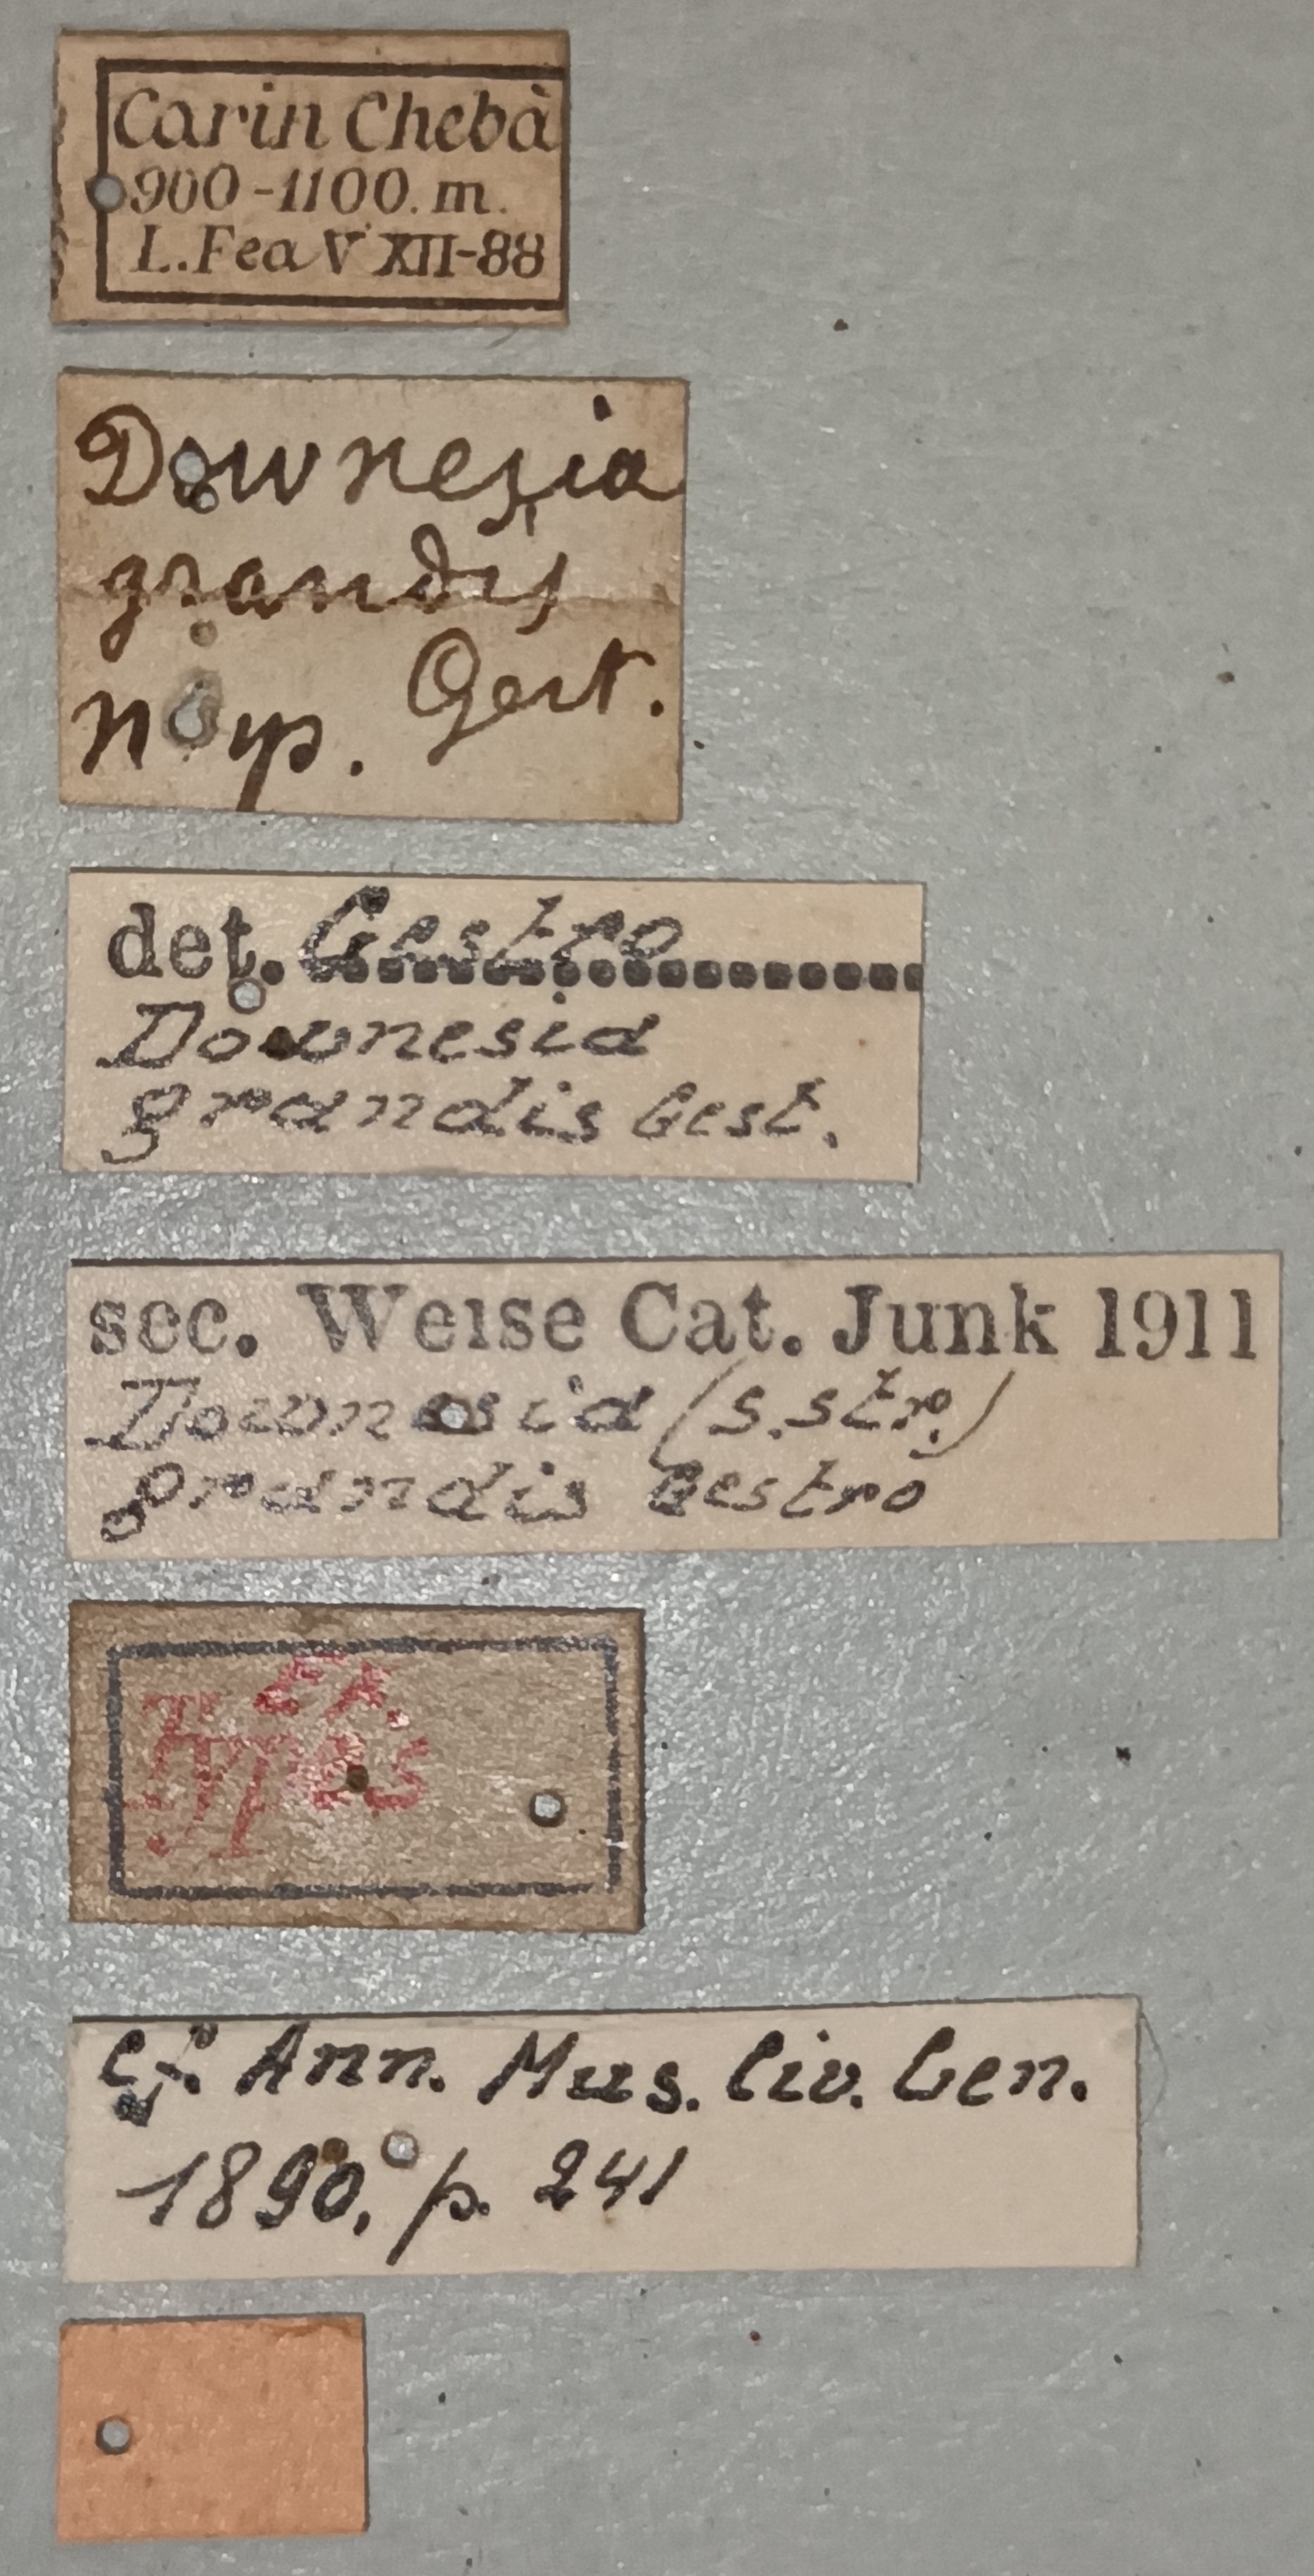 Carin Chebà
900-1100. m.
L. Fea V XII-88
Downesia
grandis
n. sp. Gest.
det. Gestro
Downesia
grandis Gest.
sec. Weise Cat. Junk 1911
Downesia (s. str.)
grandis Gestro
Ex
Typis
cf. Ann. Mus. Civ. Gen.
1890, p. 241